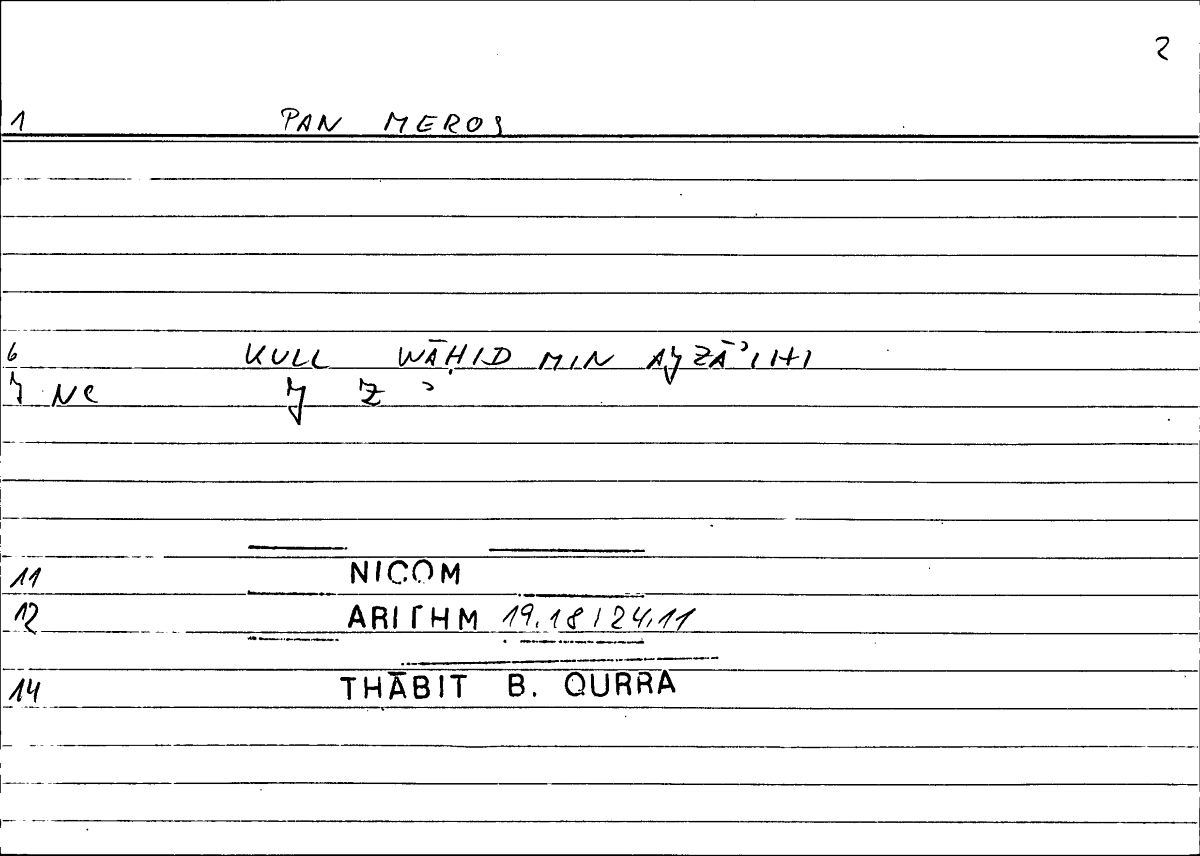 2
1 PAN MEROS
6 KULL WĀḤID MIN AJZĀʾIHI
7 NC J Z ʾ
11 NICOM
12 ARITHM 19.18 / 24.11
14 THĀBIT B. QURRA